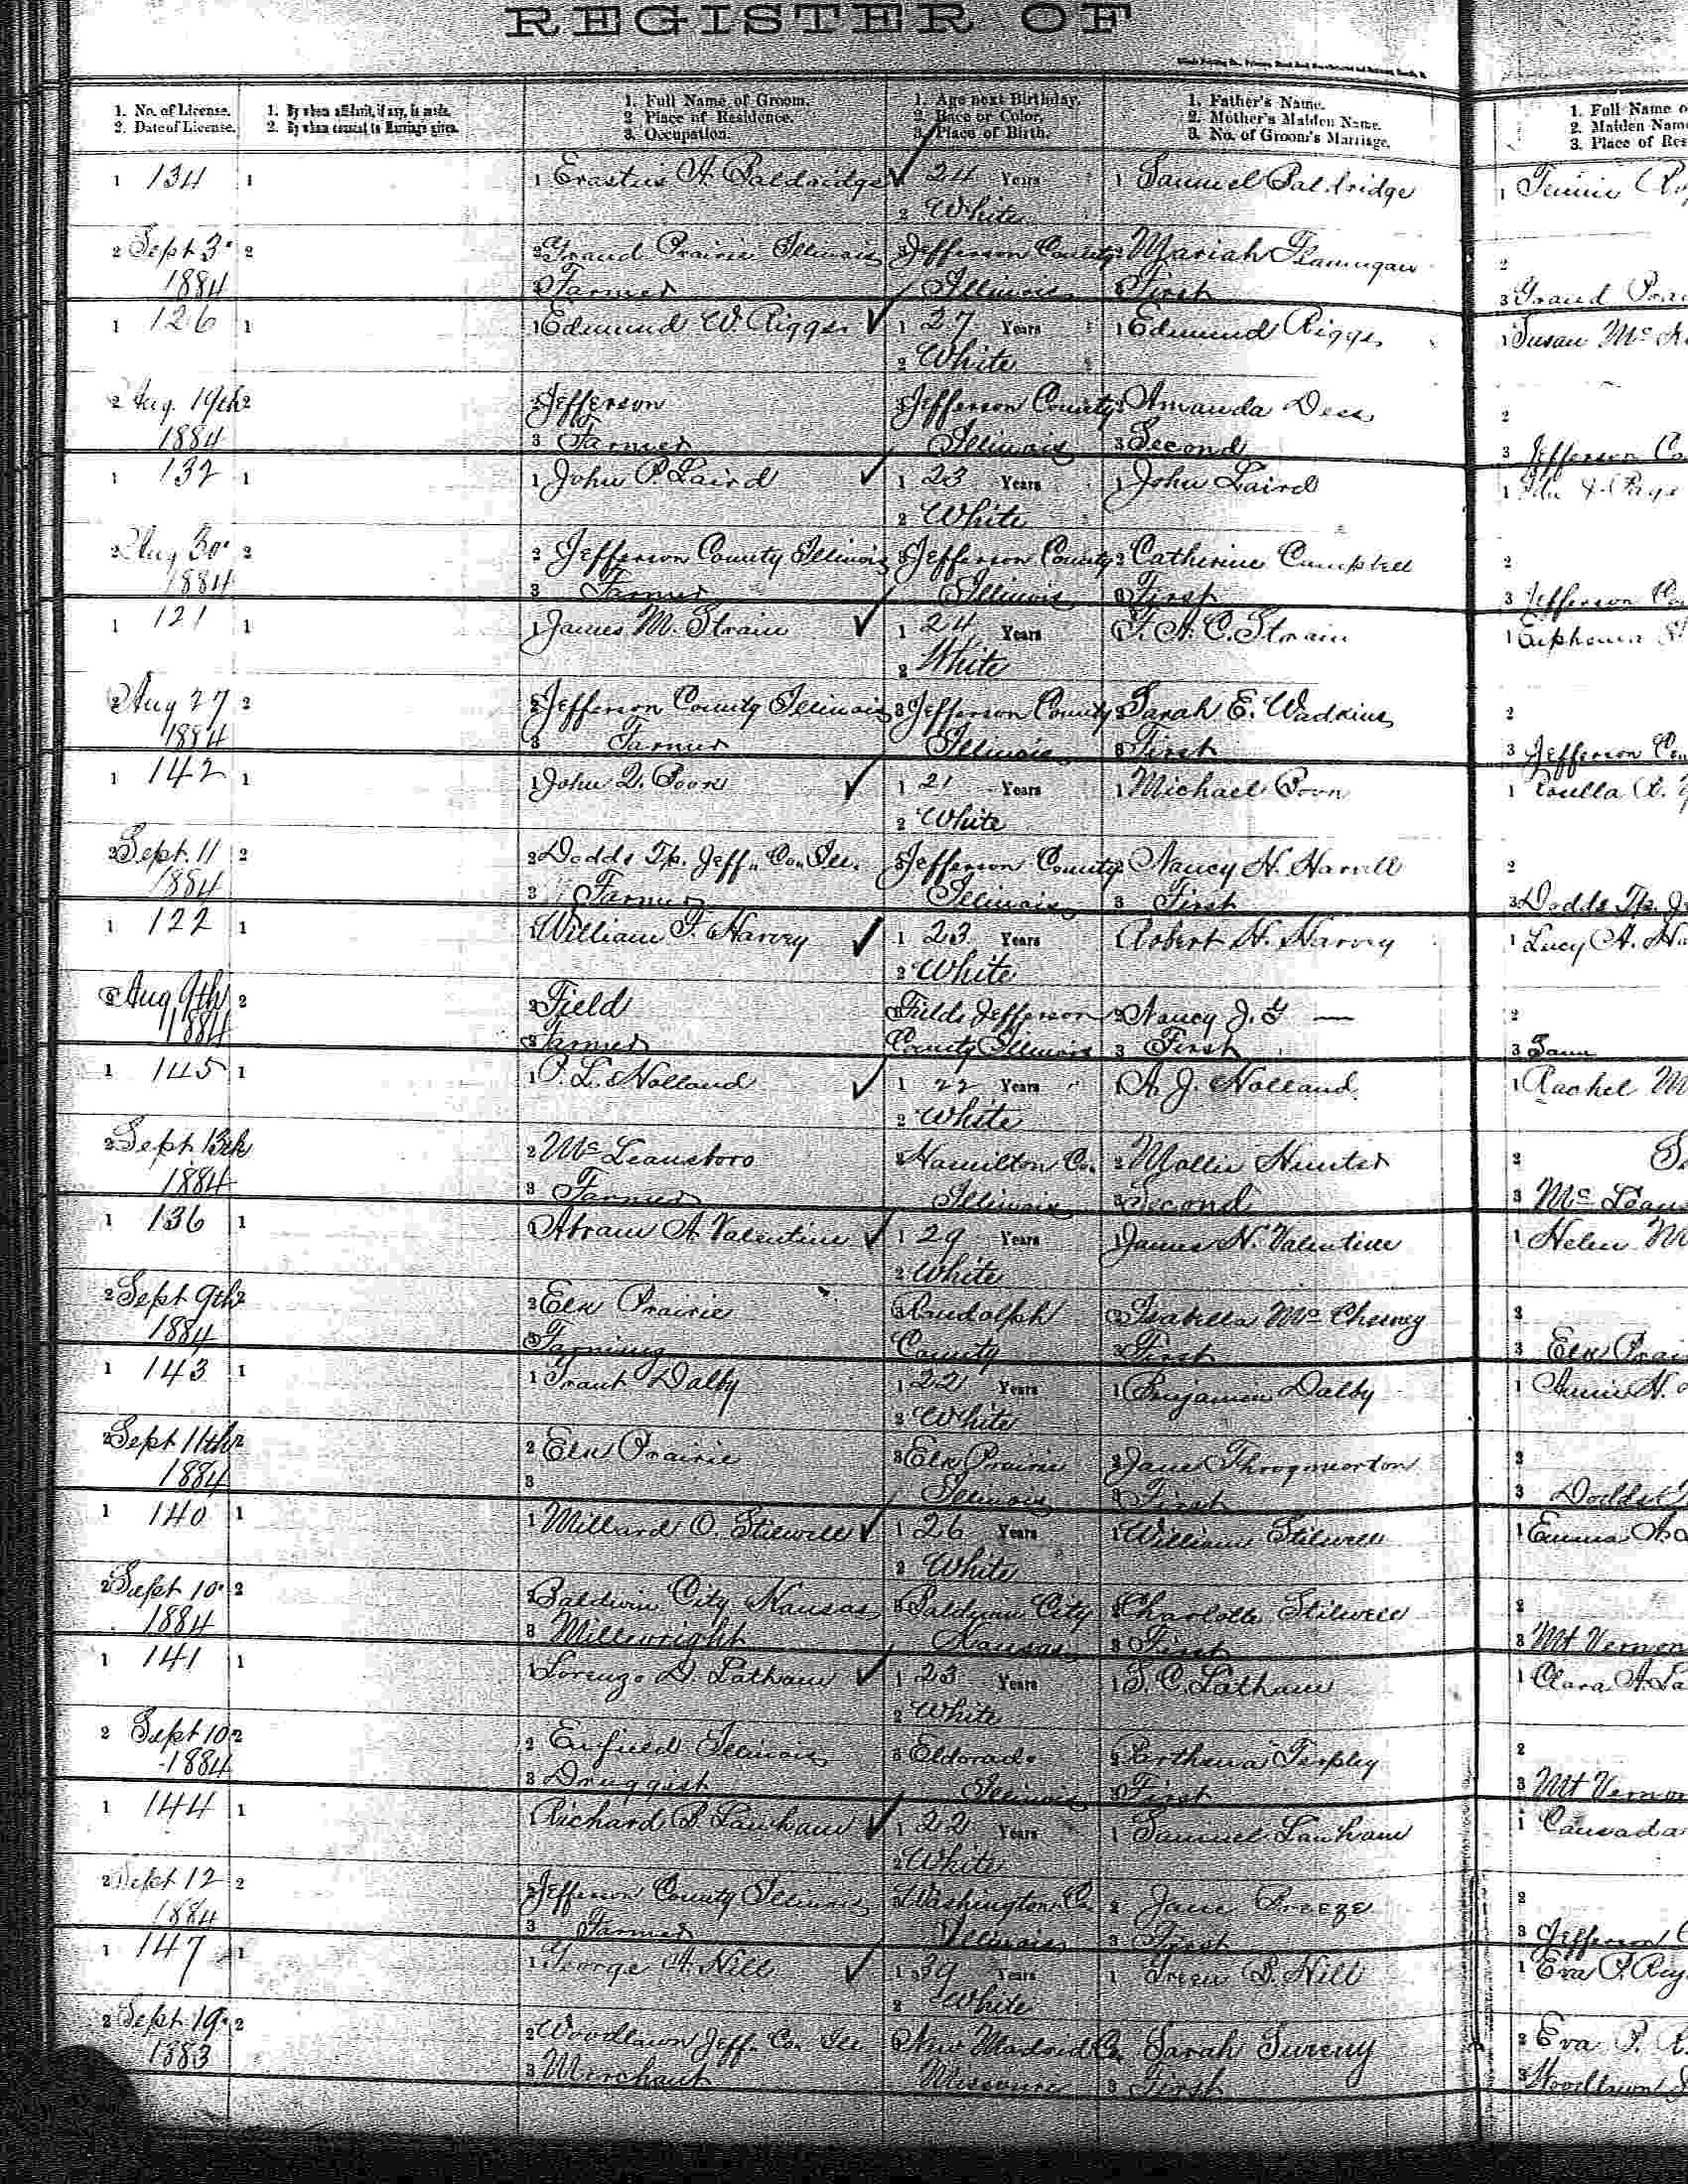 REGISTER OF
1. No. of License.
2. Date of License.
1. By whom affidavit, if any, is made.
2. By whom consent to Marriage given.
1. Full Name of Groom.
2. Place of Residence.
3. Occupation.
1. Age next Birthday.
2. Race or Color.
3. Place of Birth.
1. Father's Name.
2. Mother's Maiden Name.
3. No. of Groom's Marriage.
1. Full Name o
2. Maiden Nam
3. Place of Res
1 134 1 1 Erastus A. Baldridge ✓ 24 Years 1 Samuel Baldridge 1
2 White
2 Sept 3. 2 2 Grand Prairie Illinois 3 Jefferson County 2 Mariah Flannigan 2
1884 3 Farmer Illinois 3 First 3 Grand Prai
1 126 1 1 Edmund W. Riggs. ✓ 1 27 Years 1 Edmund Riggs, 1 Susan Mc
2 White
2 Aug. 19th 2 2 Jefferson 3 Jefferson County 2 Amanda Dees 2
1884 3 Farmer Illinois 3 Second 3 Jefferson Co
1 132 1 1 John P. Laird ✓ 1 23 Years 1 John Laird 1 Ida
2 White
2 Aug 30. 2 2 Jefferson County Illinois 3 Jefferson County 2 Catherine Campbell 2
1884 3 Farmer Illinois 3 First 3 Jefferson Co
1 121 1 1 James M. Strain ✓ 1 24 Years 1 A. C. Strain 1
2 White
2 Aug 27 2 2 Jefferson County Illinois 3 Jefferson County 2 Sarah E. Wadkins 2
1884 3 Farmer Illinois 3 First 3 Jefferson Cou
1 142 1 1 John Q. Poor ✓ 1 21 Years 1 Michael 1
2 White
2 Sept. 11 2 2 Dodds Tp. Jeff. Co. Ill. 3 Jefferson County 2 Nancy H. Harvill 2
1884 3 Farmer Illinois 3 First 3 Dodds Tp. J
1 122 1 1 William T. Harvey ✓ 1 23 Years 1 Robert H. Harvey 1 Lucy A. Ha
2 White
2 Aug 9th 2 2 Field 3 Fields Jefferson 2 Nancy J. G — 2
1884 3 Farmer County Illinois 3 First 3 Same
1 145 1 1 P. L. Holland ✓ 1 22 Years 1 A. J. Holland. 1 Rachel M
2 White
2 Sept 13th 2 Mc Leansboro 3 Hamilton Co. 2 Mollie Hunter 2
1884 3 Farmer Illinois 3 Second 3 Mc Leans
1 136 1 1 Abram A. Valentine ✓ 1 29 Years 1 James H. Valentine 1 Helen M
2 White
2 Sept 9th 2 2 Elk Prairie 3 Randolph 2 Isabella Mc Chesney 2
1884 3 Farming County 3 First 3 Elk Prai
1 143 1 1 Grant Dalby 1 22 Years 1 Benjamin Dalby 1 Annie H.
2 White
2 Sept 11th 2 2 Elk Prairie 3 Elk Prairie 2 Jane Throgmorton 2
1884 3 Illinois 3 First 3 Dodds
1 140 1 1 Millard O. Stilwell ✓ 1 26 Years 1 William Stilwell 1 Emma A.
2 White
2 Sept 10. 2 2 Baldwin City Kansas 3 Baldwin City 2 Charlotte Stilwell 2
1884 3 Millwright Kansas 3 First 3 Mt Vernon
1 141 1 1 Lorenzo D. Latham ✓ 1 23 Years 1 S. C. Latham 1 Clara A. La
2 White
2 Sept 10 2 2 Enfield Illinois 3 Eldorado 2 Parthena Tarpley 2
1884 3 Druggist Illinois 3 First 3 Mt Vernon
1 144 1 1 Richard B. Lanham ✓ 1 22 Years 1 Samuel Lanham 1 Canada
2 White
2 Sept 12 2 2 Jefferson County Illinois 3 Washington Co. 2 Jane Breeze 2
1884 3 Farmer Illinois 3 First 3 Jefferson C
1 147 1 1 George A. Hill ✓ 1 39 Years 1 Green B. Hill 1 Eva P.
2 White
2 Sept 19. 2 2 Woodlawn Jeff. Co. Ill 3 New Madrid Co. Sarah 2 Eva P. R
1883 3 Merchant Missouri 3 First 3 Woodlawn